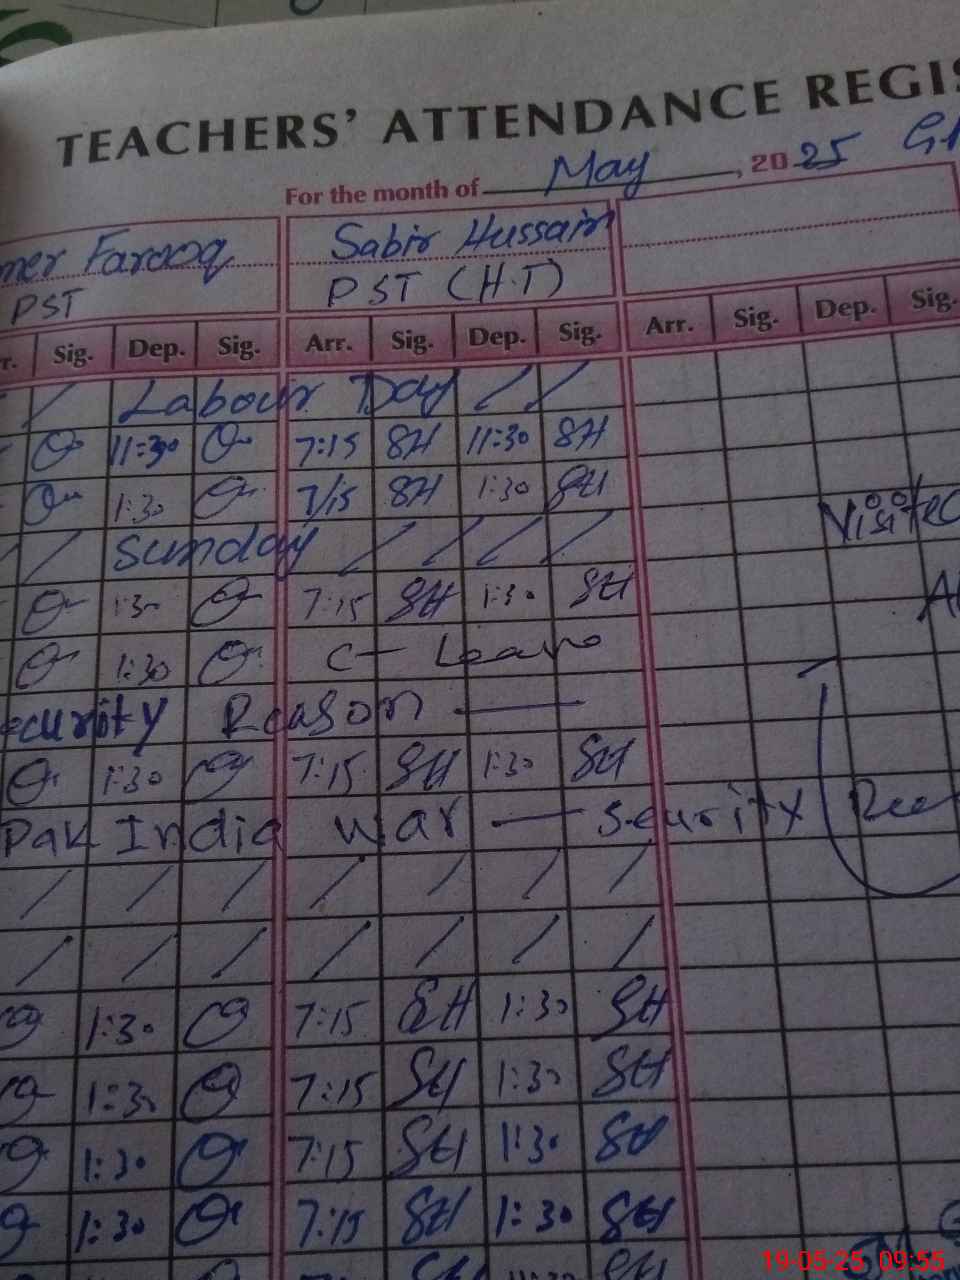 TEACHERS' ATTENDANCE REGIS
For the month of May, 2025
mer Farooq Sabir Hussain
PST PST (H.T)
r. Sig. Dep. Sig. Arr. Sig. Dep. Sig. Arr. Sig. Dep. Sig.
/ Labour Day / /
11:30 7:15 SH 11:30 SH
1:30 7/15 SH 1:30 SH
Visited
/ / Sunday / / / /
1:30 7:15 SH 1:30 SH
1:30 C- Leave
ecurity Reason —
1:30 7:15 SH 1:30 SH
Pak India war — Seurity
/ / / / / / /
/ / / / / / /
1:30 7:15 SH 1:30 SH
1:30 7:15 SH 1:30 SH
1:30 7:15 SH 1:30 SH
1:30 7:15 SH 1:30 SH
19-05-25 09:55